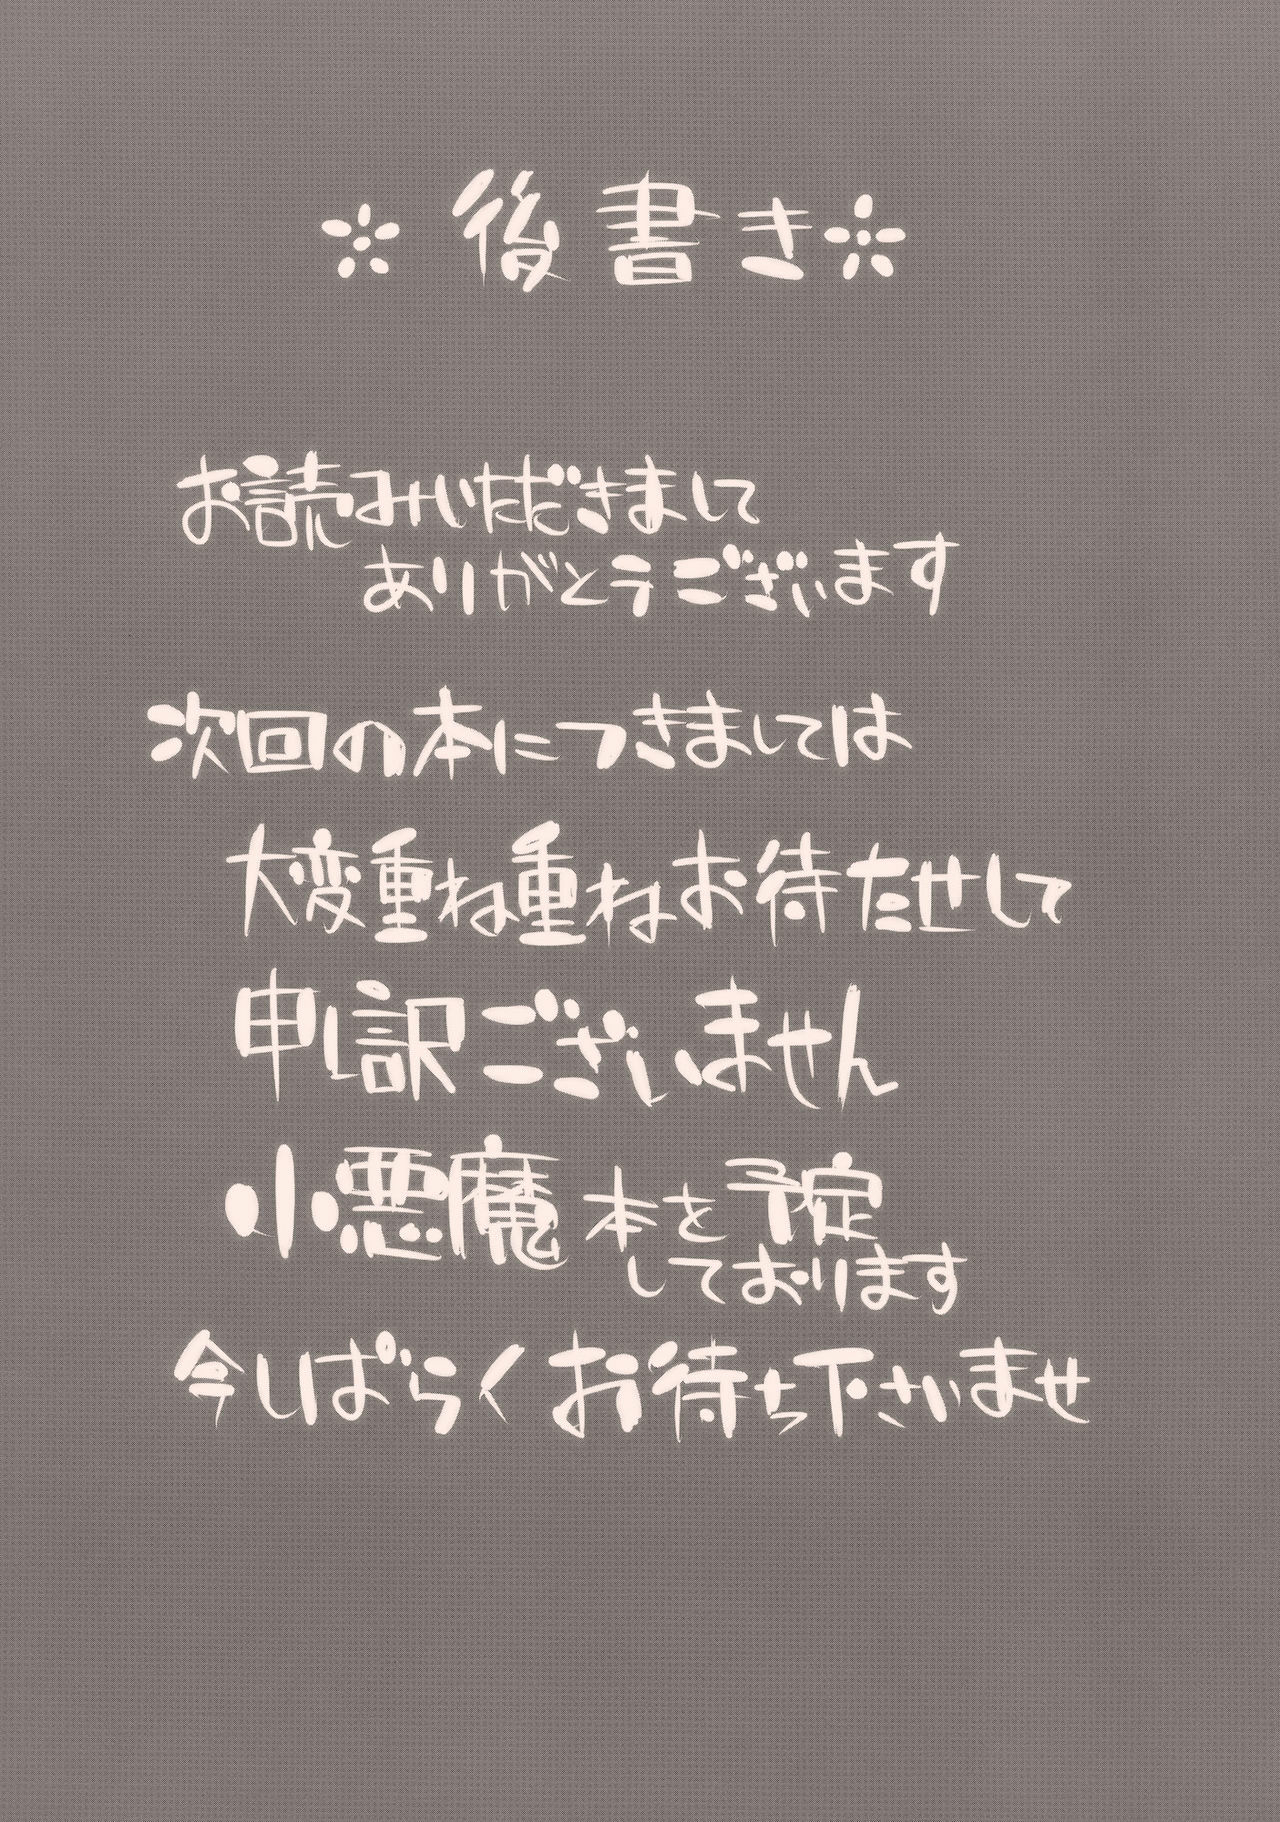 ＊後書き＊
お読みいただきまして
ありがとうございます
次回の本につきましては
大変重ね重ねお待たせして
申し訳ございません
小悪魔本を予定
しております
今しばらくお待ち下さいませ